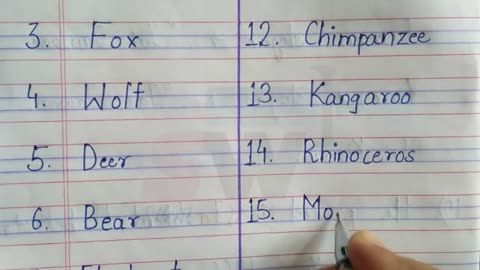 3. Fox
4. Wolf
5. Deer
6. Bear
12. Chimpanzee
13. Kangaroo
14. Rhinoceros
15. Mo